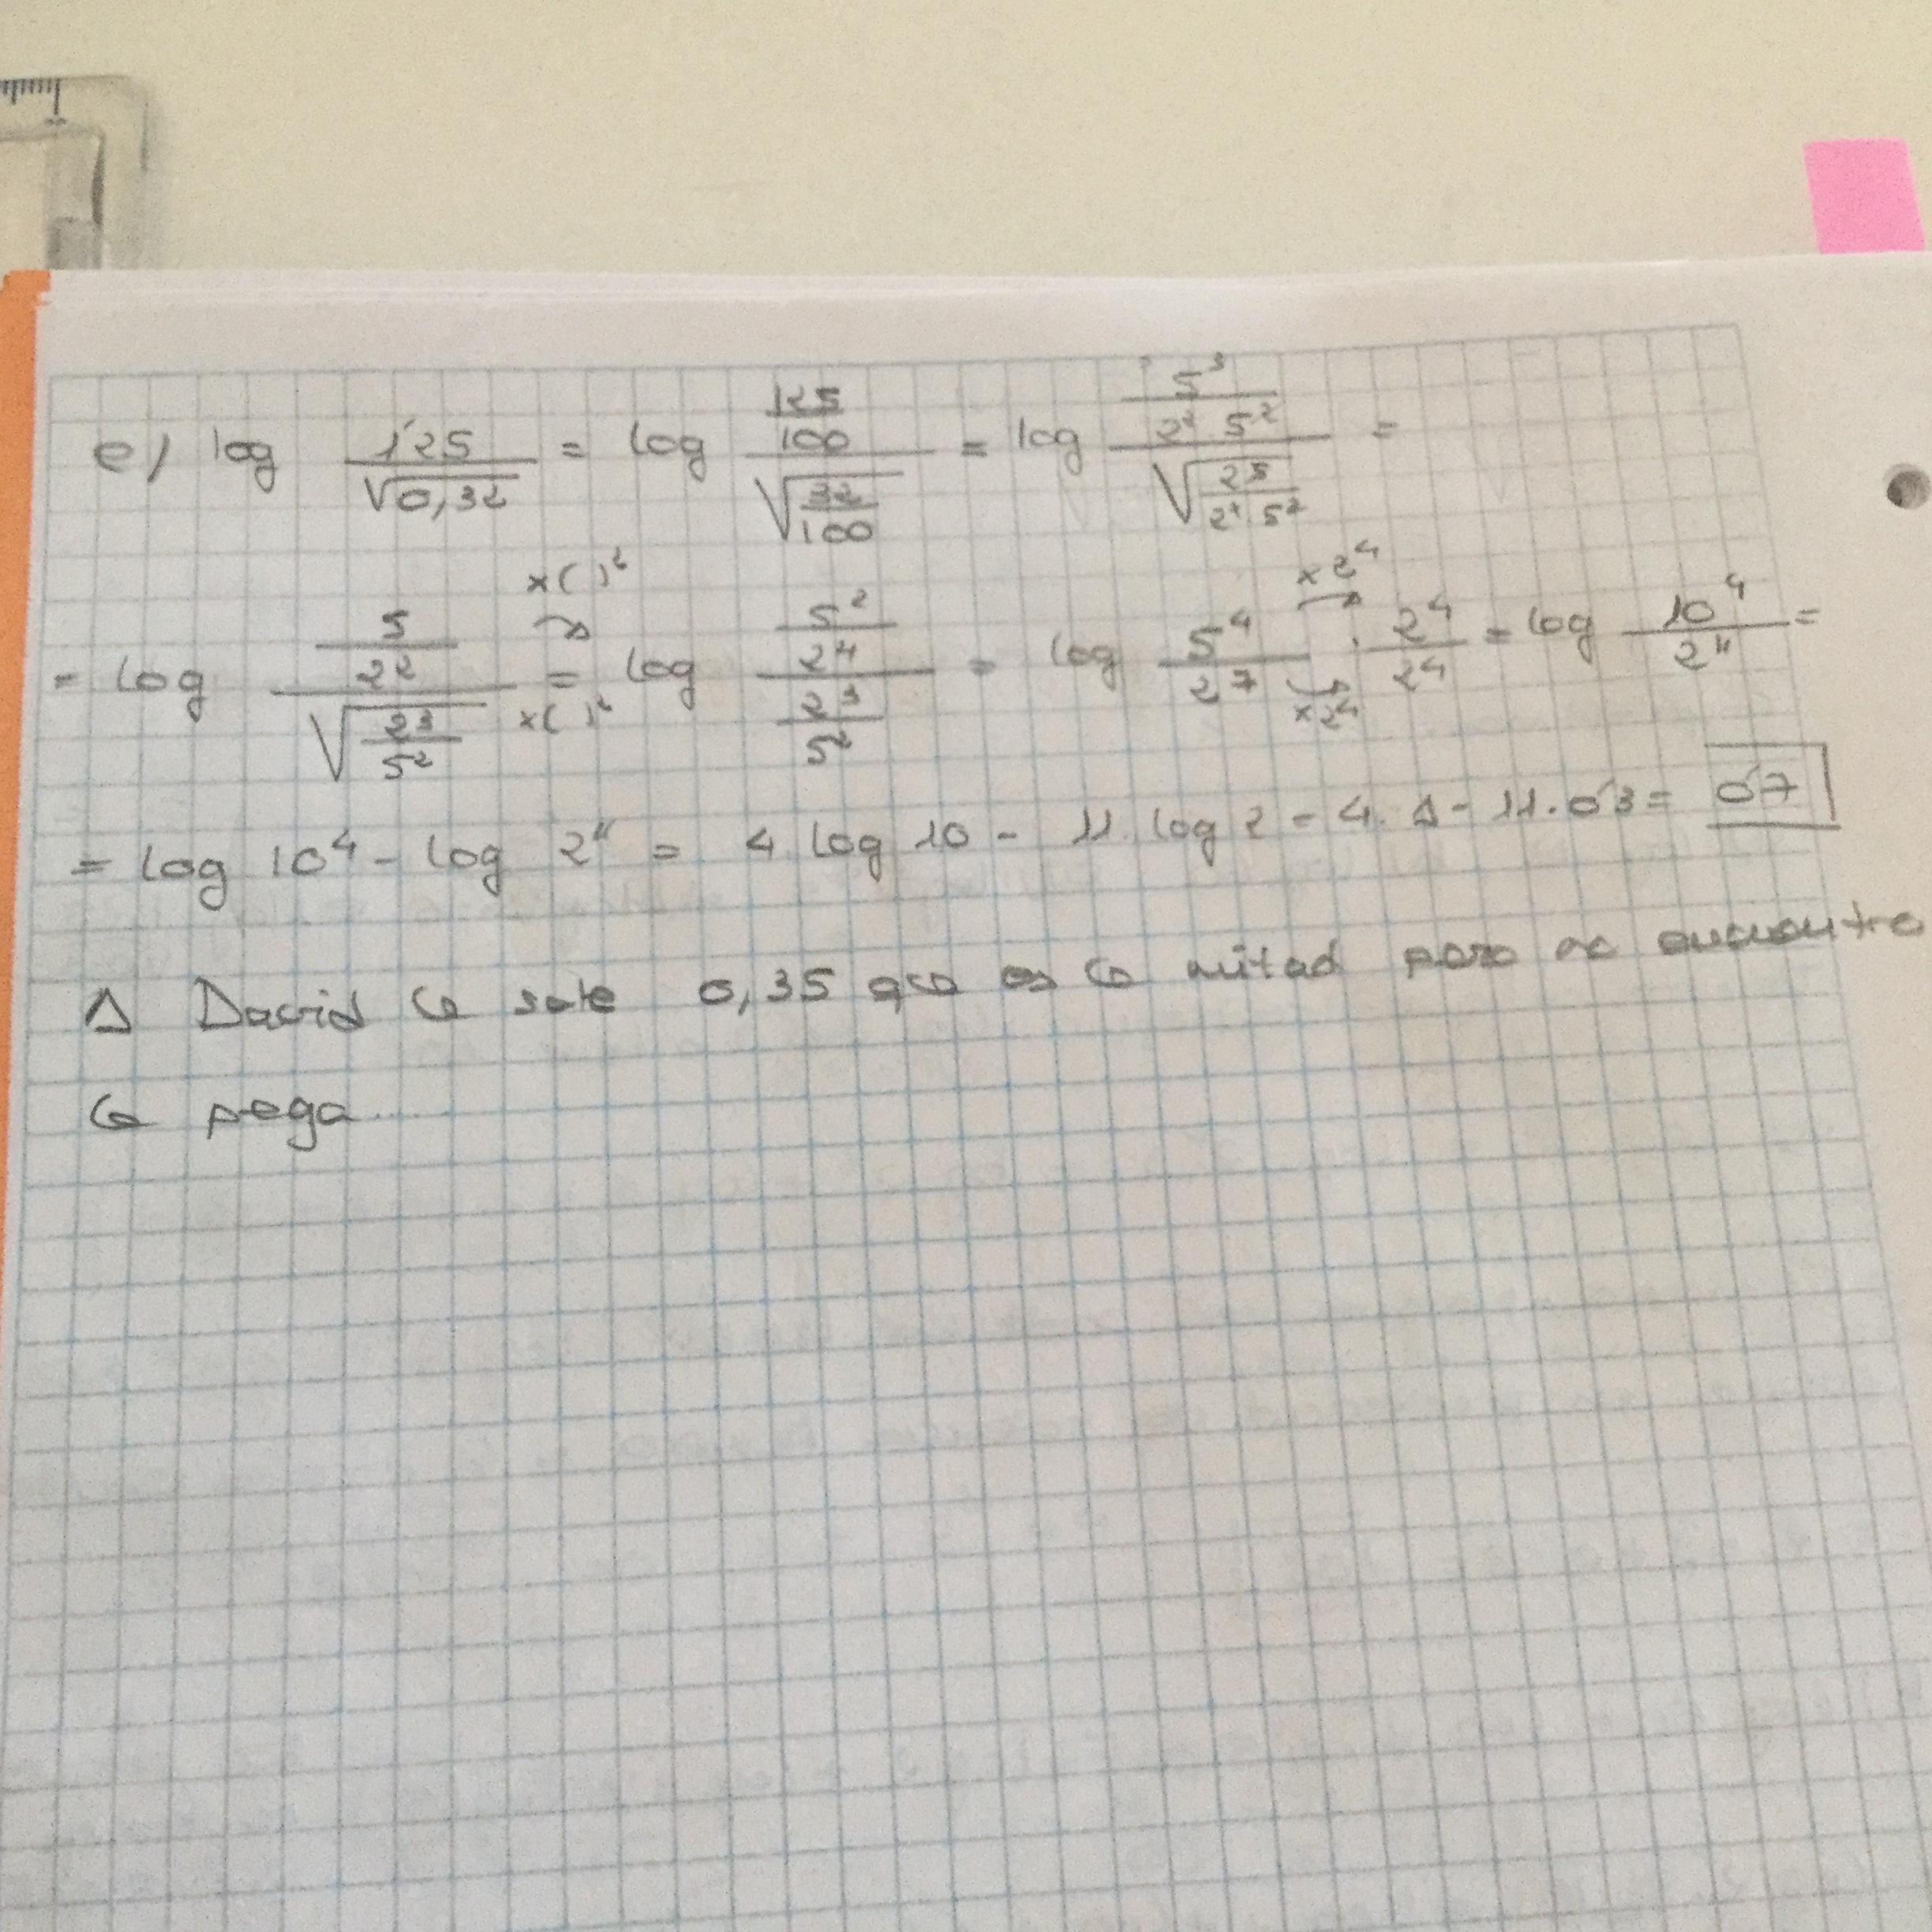 e) log 1'25/√0,32 = log (125/100)/√(32/100) = log (5³/(2² 5²))/√(2⁵/(2² 5²)) =
= log (5/2²)/√(2³/5²) x( )² = x( )² log (5²/2⁴)/(2³/5²) = log 5⁴/2⁷ x2⁴ x2⁴ · 2⁴/2⁴ = log 10⁴/2¹¹ =
= log 10⁴ - log 2¹¹ = 4 log 10 - 11 · log 2 = 4 · 1 - 11 · 0'3 = 0'7
A David le sale 0,35 que es la mitad pero no encuentro
la pega......